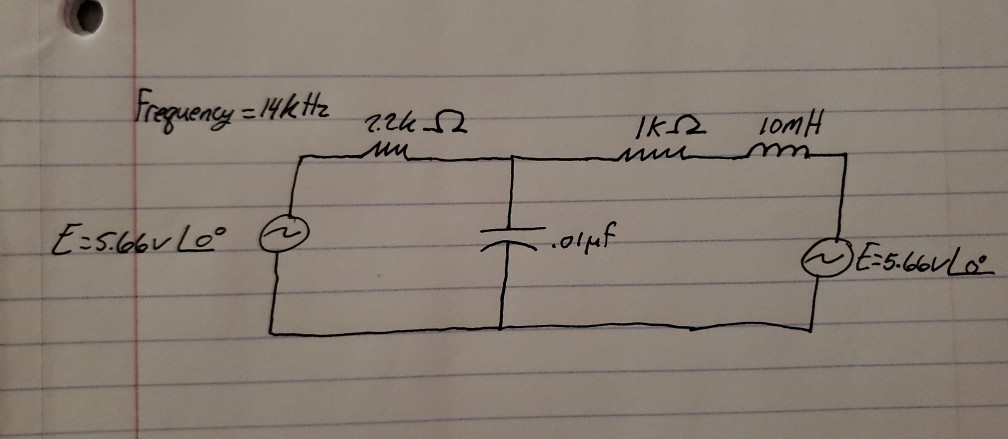 Frequency = 14kHz
2.2k Ω
1kΩ
10mH
E=5.66v∠0°
.01μf
E=5.66v∠0°